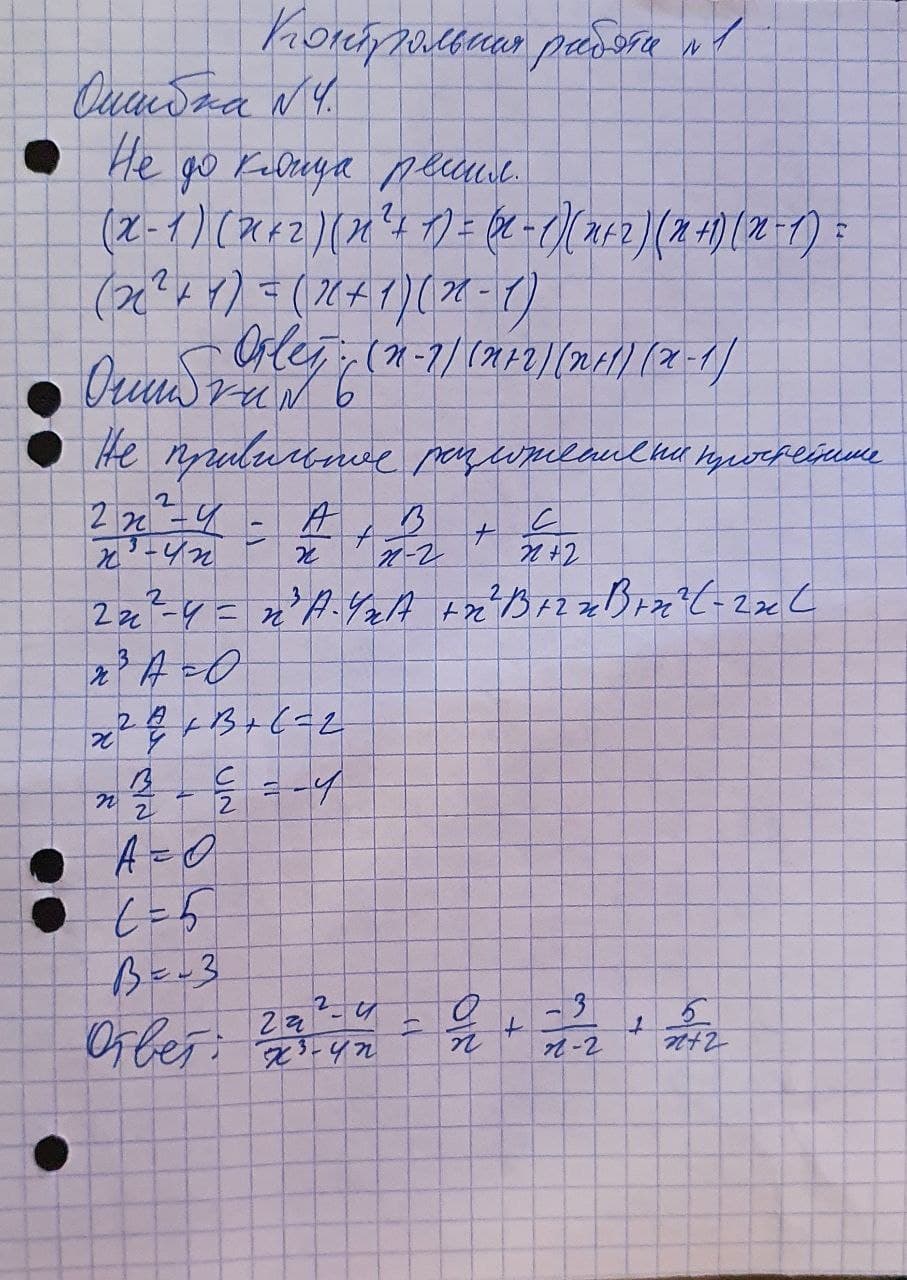 Контрольная работа №1
Ошибка №4.
Не до конца решил.
(x-1)(x+2)(x²+1)=(x-1)(x+2)(x+1)(x-1)=
(x²+1)=(x+1)(x-1)
Ответ: (x-1)(x+2)(x+1)(x-1)
Ошибки № 6
Не правильное разложение на простейшие
\frac{2x²-4}{x³-4x} = \frac{A}{x} + \frac{B}{x-2} + \frac{C}{x+2}
2x²-4 = x³A-4xA +x²B+2xB+x²C-2xC
x³ A=0
x² \frac{A}{4} + B + C = 2
x \frac{B}{2} - \frac{C}{2} = -4
A=0
C=5
B=-3
Ответ: \frac{2x²-4}{x³-4x} = \frac{0}{x} + \frac{-3}{x-2} + \frac{5}{x+2}